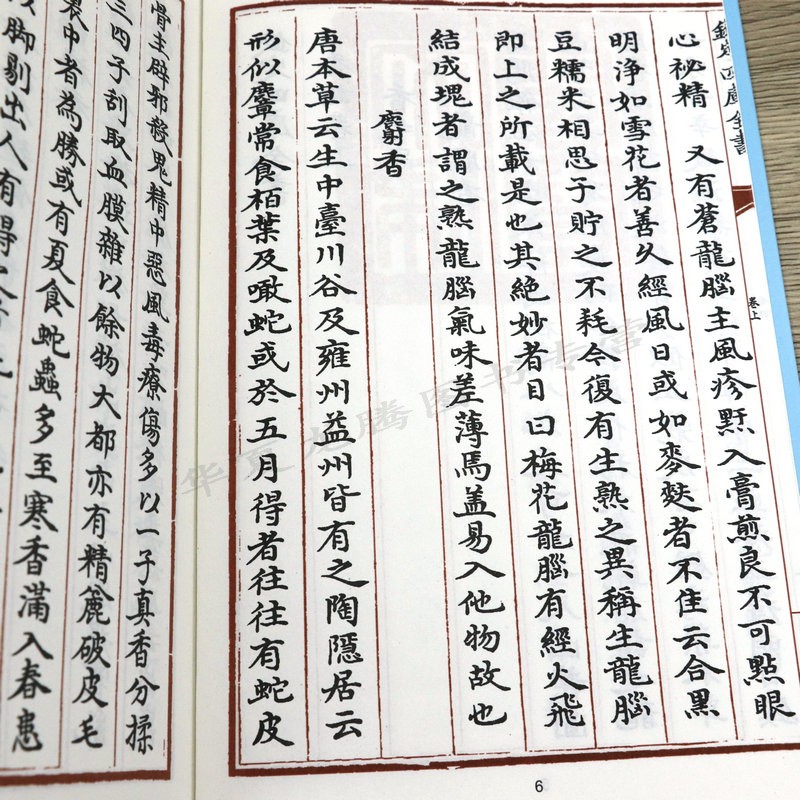 欽定四庫全書
卷上
心祕精　又有蒼龍腦主風疹䵟入膏煎良不可點眼
明淨如雪花者善久經風日或如麥麩者不佳云合黑
豆糯米相思子貯之不耗今復有生熟之異稱生龍腦
即上之所載是也其絶妙者目曰梅花龍腦有經火飛
結成塊者謂之熟龍腦氣味差薄焉盖易入他物故也
麝香
唐本草云生中臺川谷及雍州益州皆有之陶隱居云
形似麞常食栢葉及噉蛇或於五月得者往往有蛇皮
6
骨主辟邪殺鬼精中惡風毒療傷多以一子真香分揉
三四子刮取血膜雜以餘物大都亦有精麄破皮毛
裹中者為勝或有夏食蛇蟲多至寒香滿入春患
以脚剔出人有得
华夏九腾图书专营